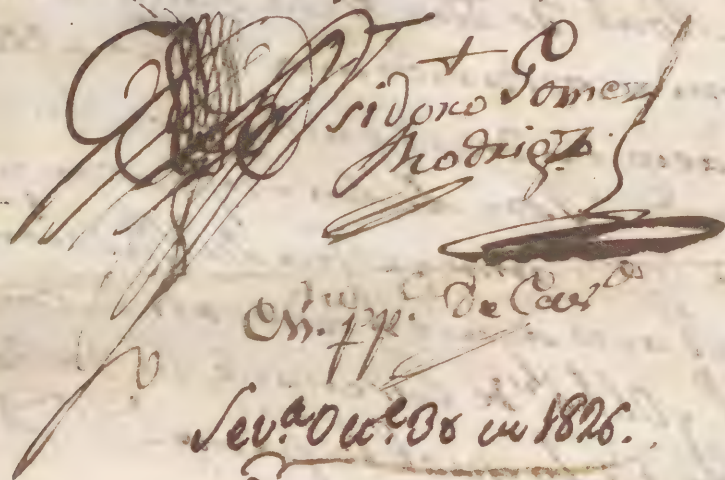 Isidoro Gomez
Rodrig.z
pp.co de Car.os
Sev.a Oct.e 30 de 1826.